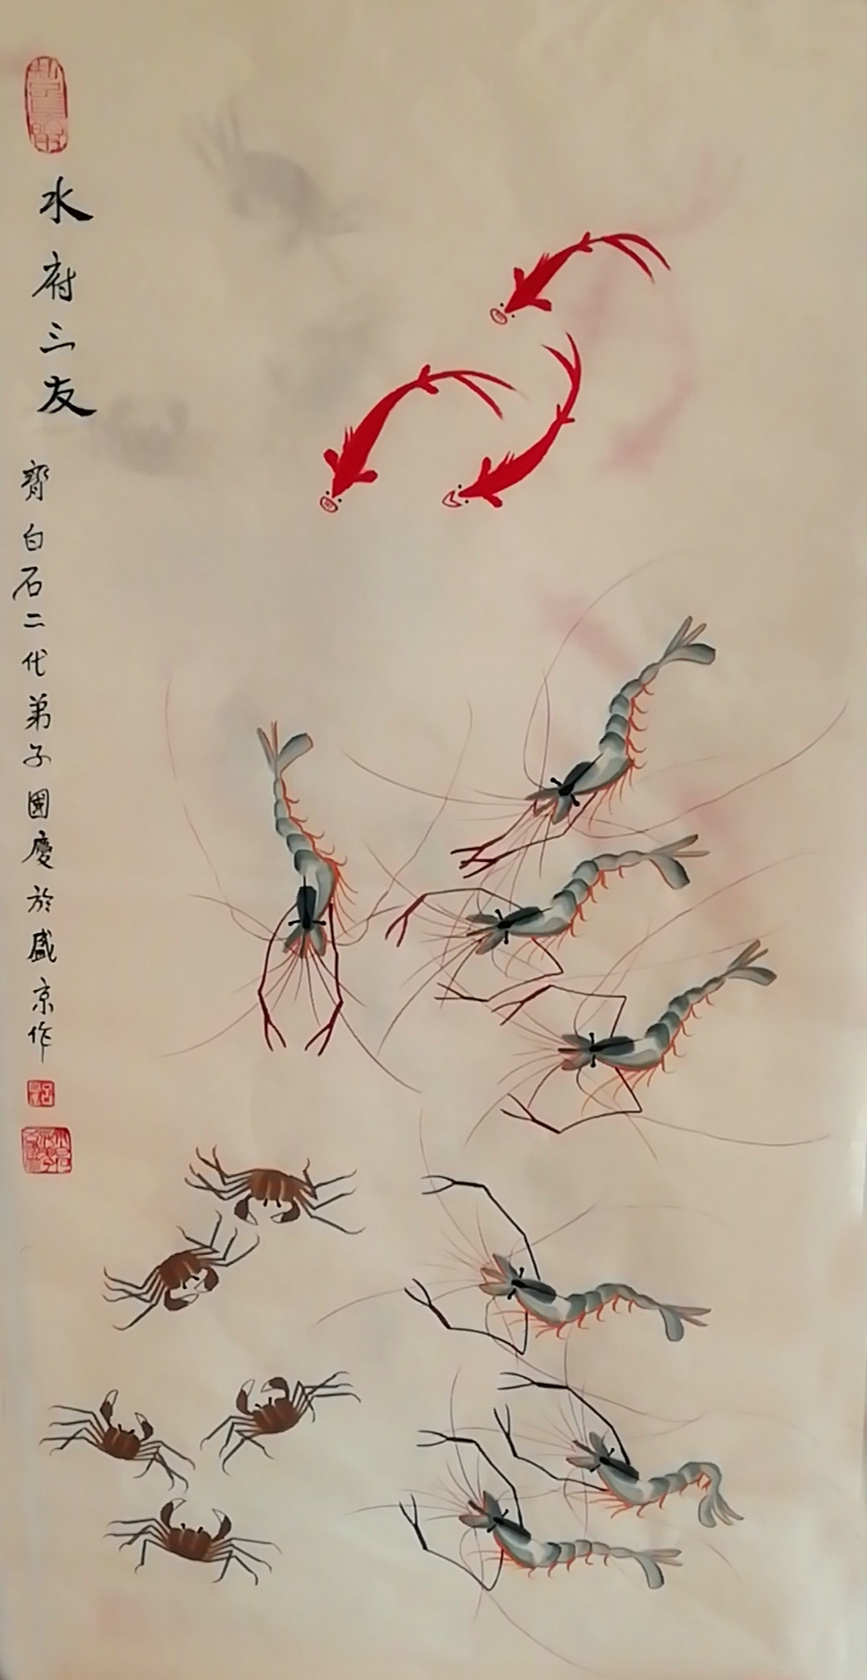 水府三友
齊白石二代弟子國慶於盛京作